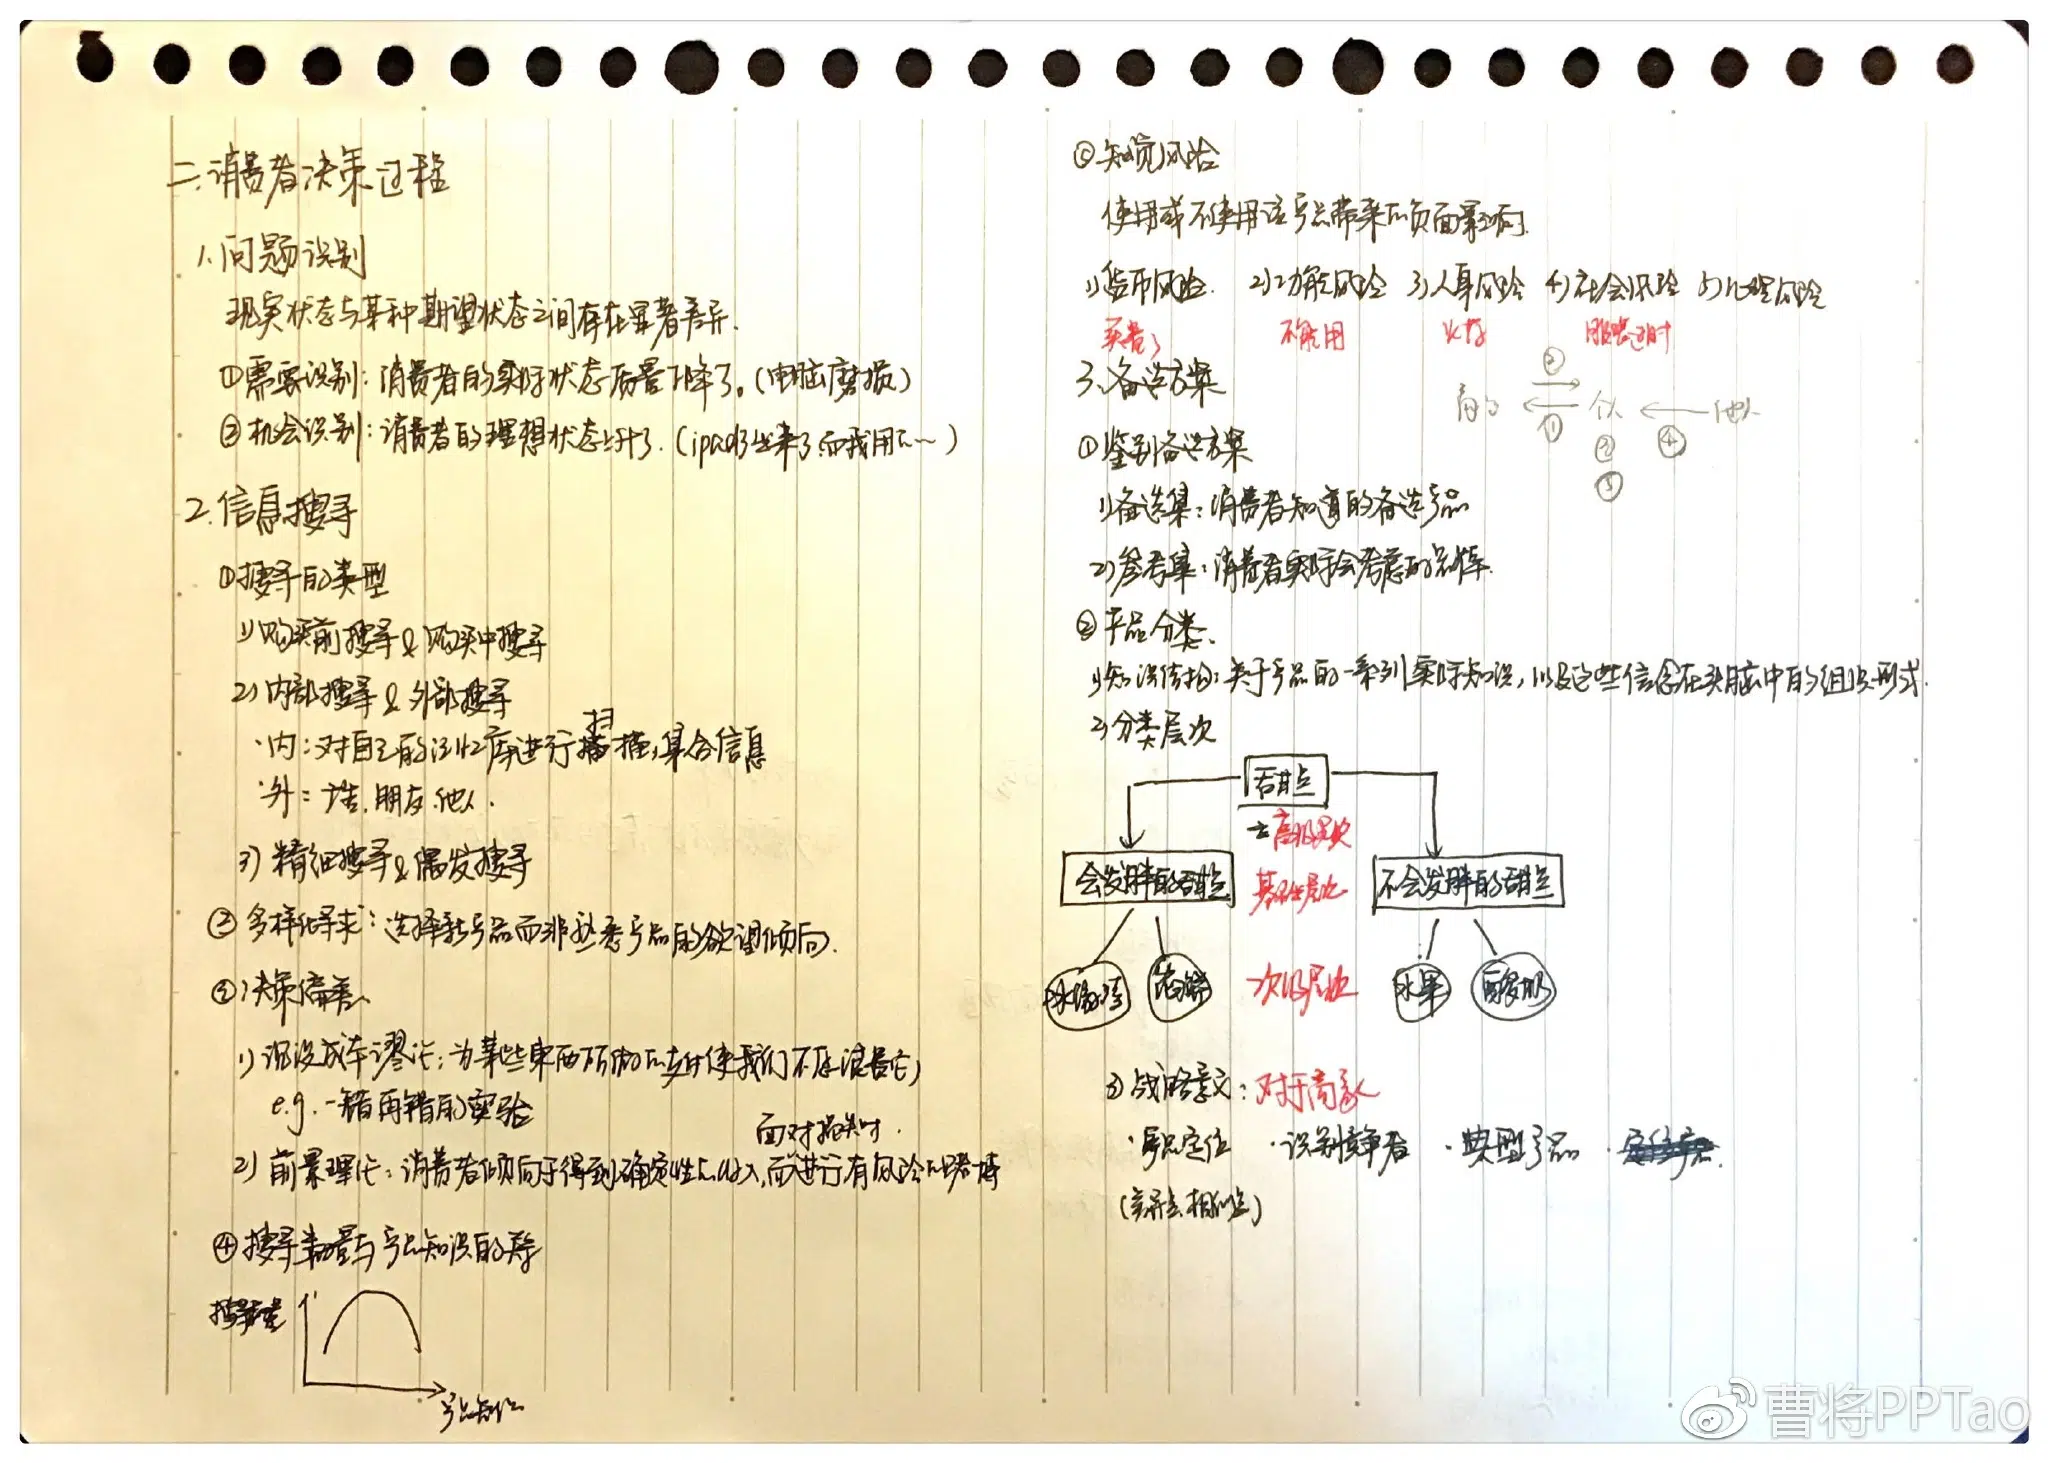 二.消费者决策过程
1.问题识别
现实状态与某种期望状态之间存在显著差异.
①需要识别:消费者的实际状态质量下降了。(电脑磨损)
②机会识别:消费者的理想状态上升了.(ipad3出来了而我用
2.信息搜寻
①搜寻的类型
1)购买前搜寻&购买中搜寻
2)内部搜寻&外部搜寻
·内:对自己的记忆库进行扫描,集合信息
·外:广告.朋友.他人.
3)精细搜寻&偶发搜寻
②多样化寻求:选择新产品而非熟悉产品的欲望倾向.
③决策偏差
1)沉没成本谬论:为某些东西所做的支付使我们不愿浪费它)
e.g.一错再错的实验
面对损失时.
2)前景理论:消费者倾向于得到确定性的收入,而进行有风险的赌博
④搜寻数量与产品知识的关系
搜寻数量
产品知识
⑤知觉风险
使用或不使用该产品带来的负面影响.
1)货币风险. 2)功能风险 3)人身风险 4)社会风险 5)心理风险
买贵了 不能用 服装过时
3.备选方案
② 商 ① 个人 ③ ⑤ ④ 他人
①鉴别备选方案
1)备选集:消费者知道的备选产品
2)参考集:消费者实际会考虑的品牌.
②产品分类.
1)知识结构:关于产品的一系列实际知识,以及这些信念在头脑中的组织形式.
2)分类层次
甜点
高级层次
会发胖的甜点 基础层次 不会发胖的甜点
冰激凌 蛋糕 次级层次 水果 酸奶
③战略意义:对于商家
·产品定位 ·识别竞争者 ·典型产品
(差异点.相似点)
曹将PPTao